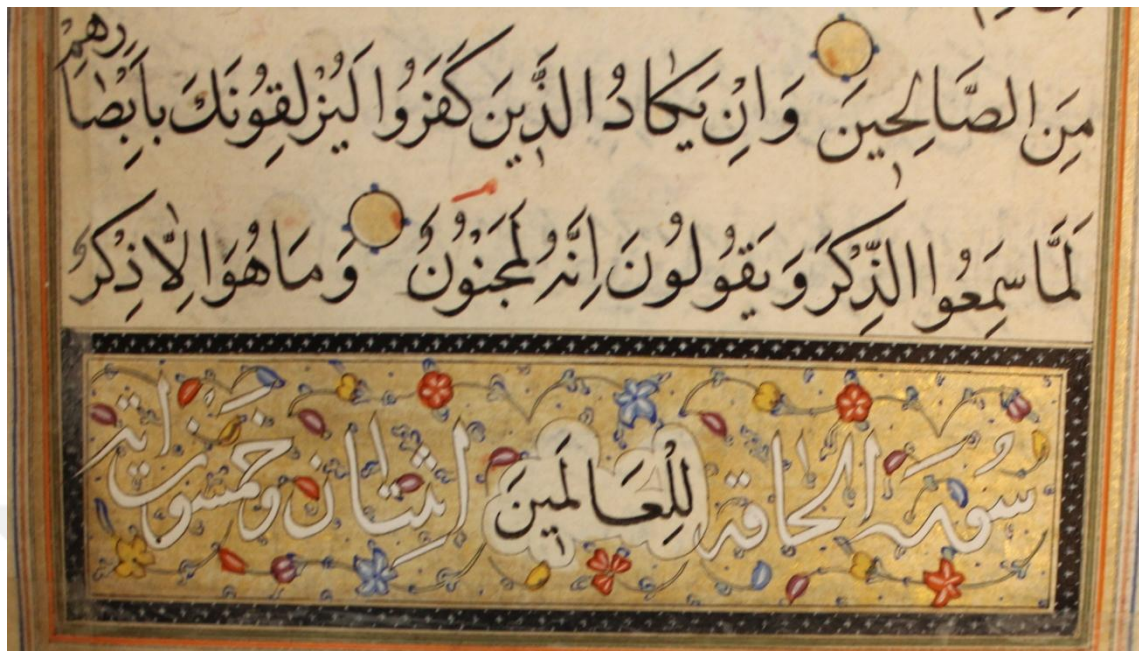 مِنَ الصَّالِحِينَ وَاِنْ يَكَادُ الَّذِينَ كَفَرُوا لَيُزْلِقُونَكَ بِاَبْصَارِهِمْ
لَمَّا سَمِعُوا الذِّكْرَ وَيَقُولُونَ اِنَّهُ لَمَجْنُونٌ وَمَا هُوَ اِلَّا ذِكْرٌ
سورة الحاقة لِلْعَالَمِينَ اثنتان وخمسون اية